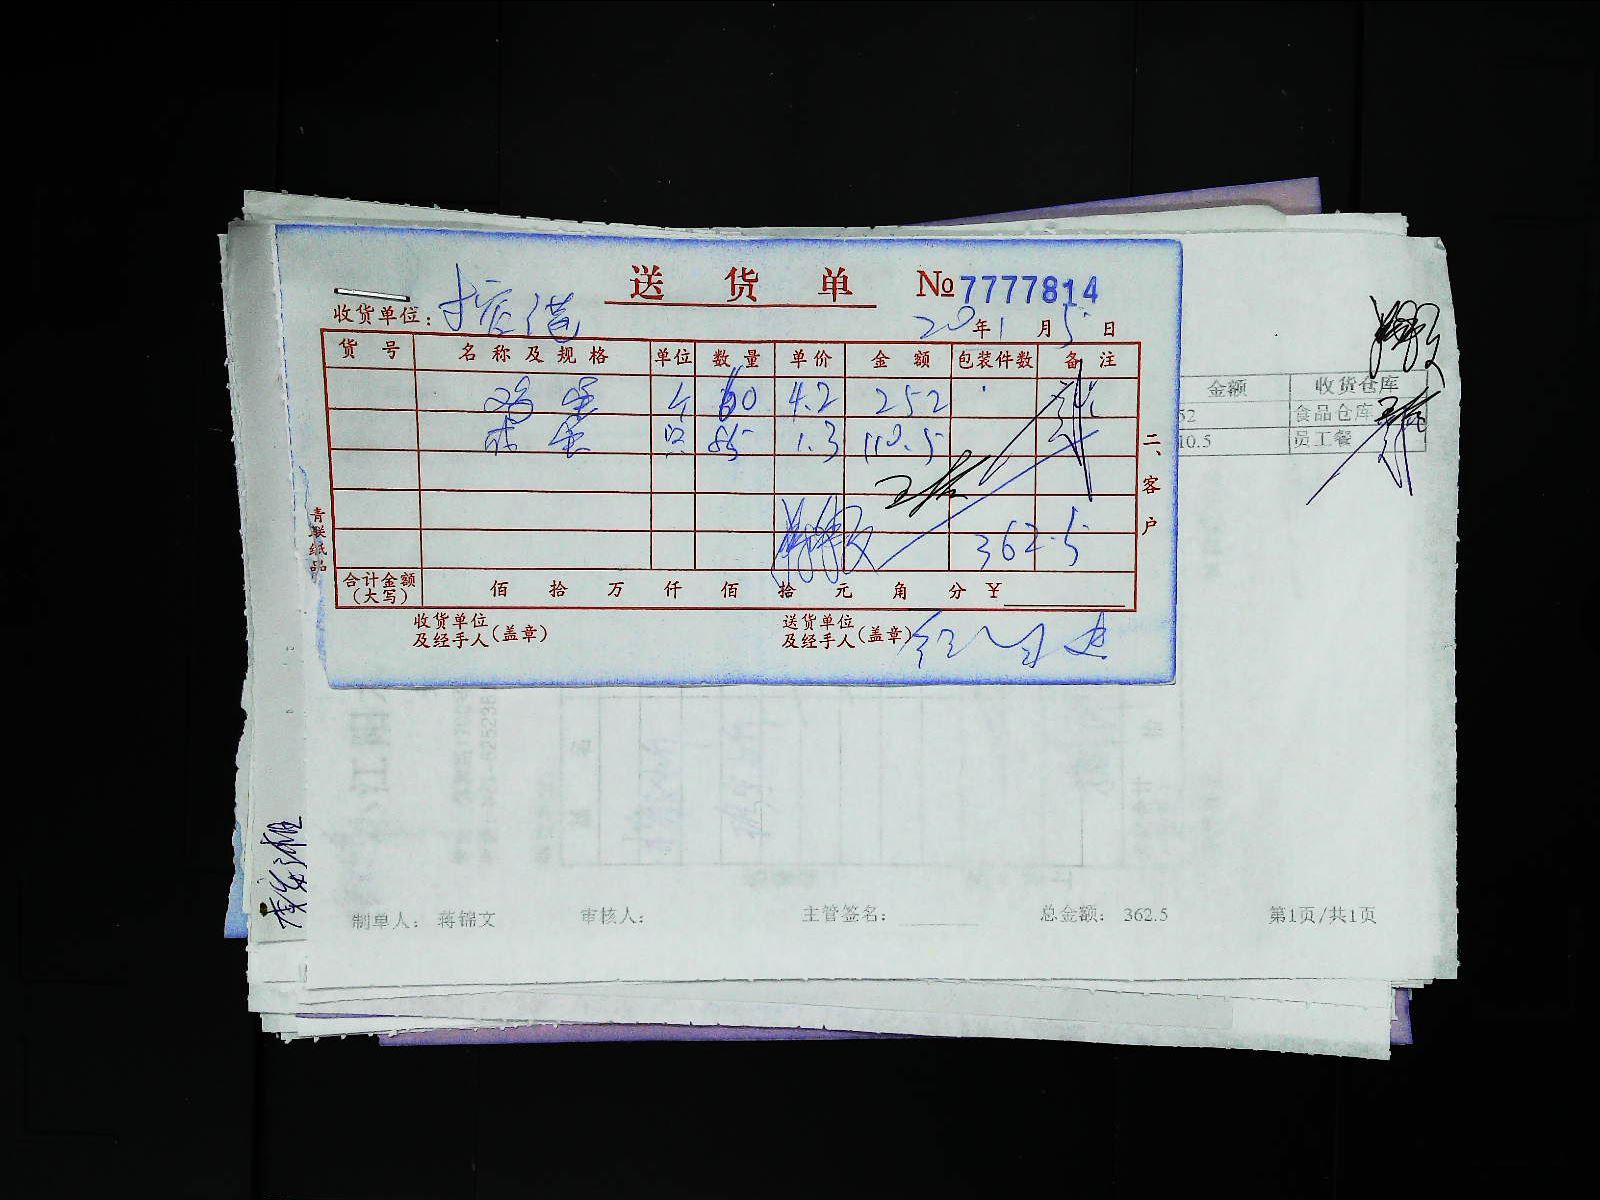 送货单 №7777814
收货单位: 20年1月5日
货号 名称及规格 单位 数量 单价 金额 包装件数 备注
鸡蛋 个 60 4.2 252
蛋 只 85 1.3 110.5
362.5
合计金额(大写) 佰 拾 万 仟 佰 拾 元 角 分 ¥
收货单位及经手人(盖章) 送货单位及经手人(盖章)
二、客户
青联纸品
金额 收货仓库
52 食品仓库
10.5 员工餐
制单人: 蒋锦文 审核人: 主管签名: 总金额: 362.5 第1页/共1页